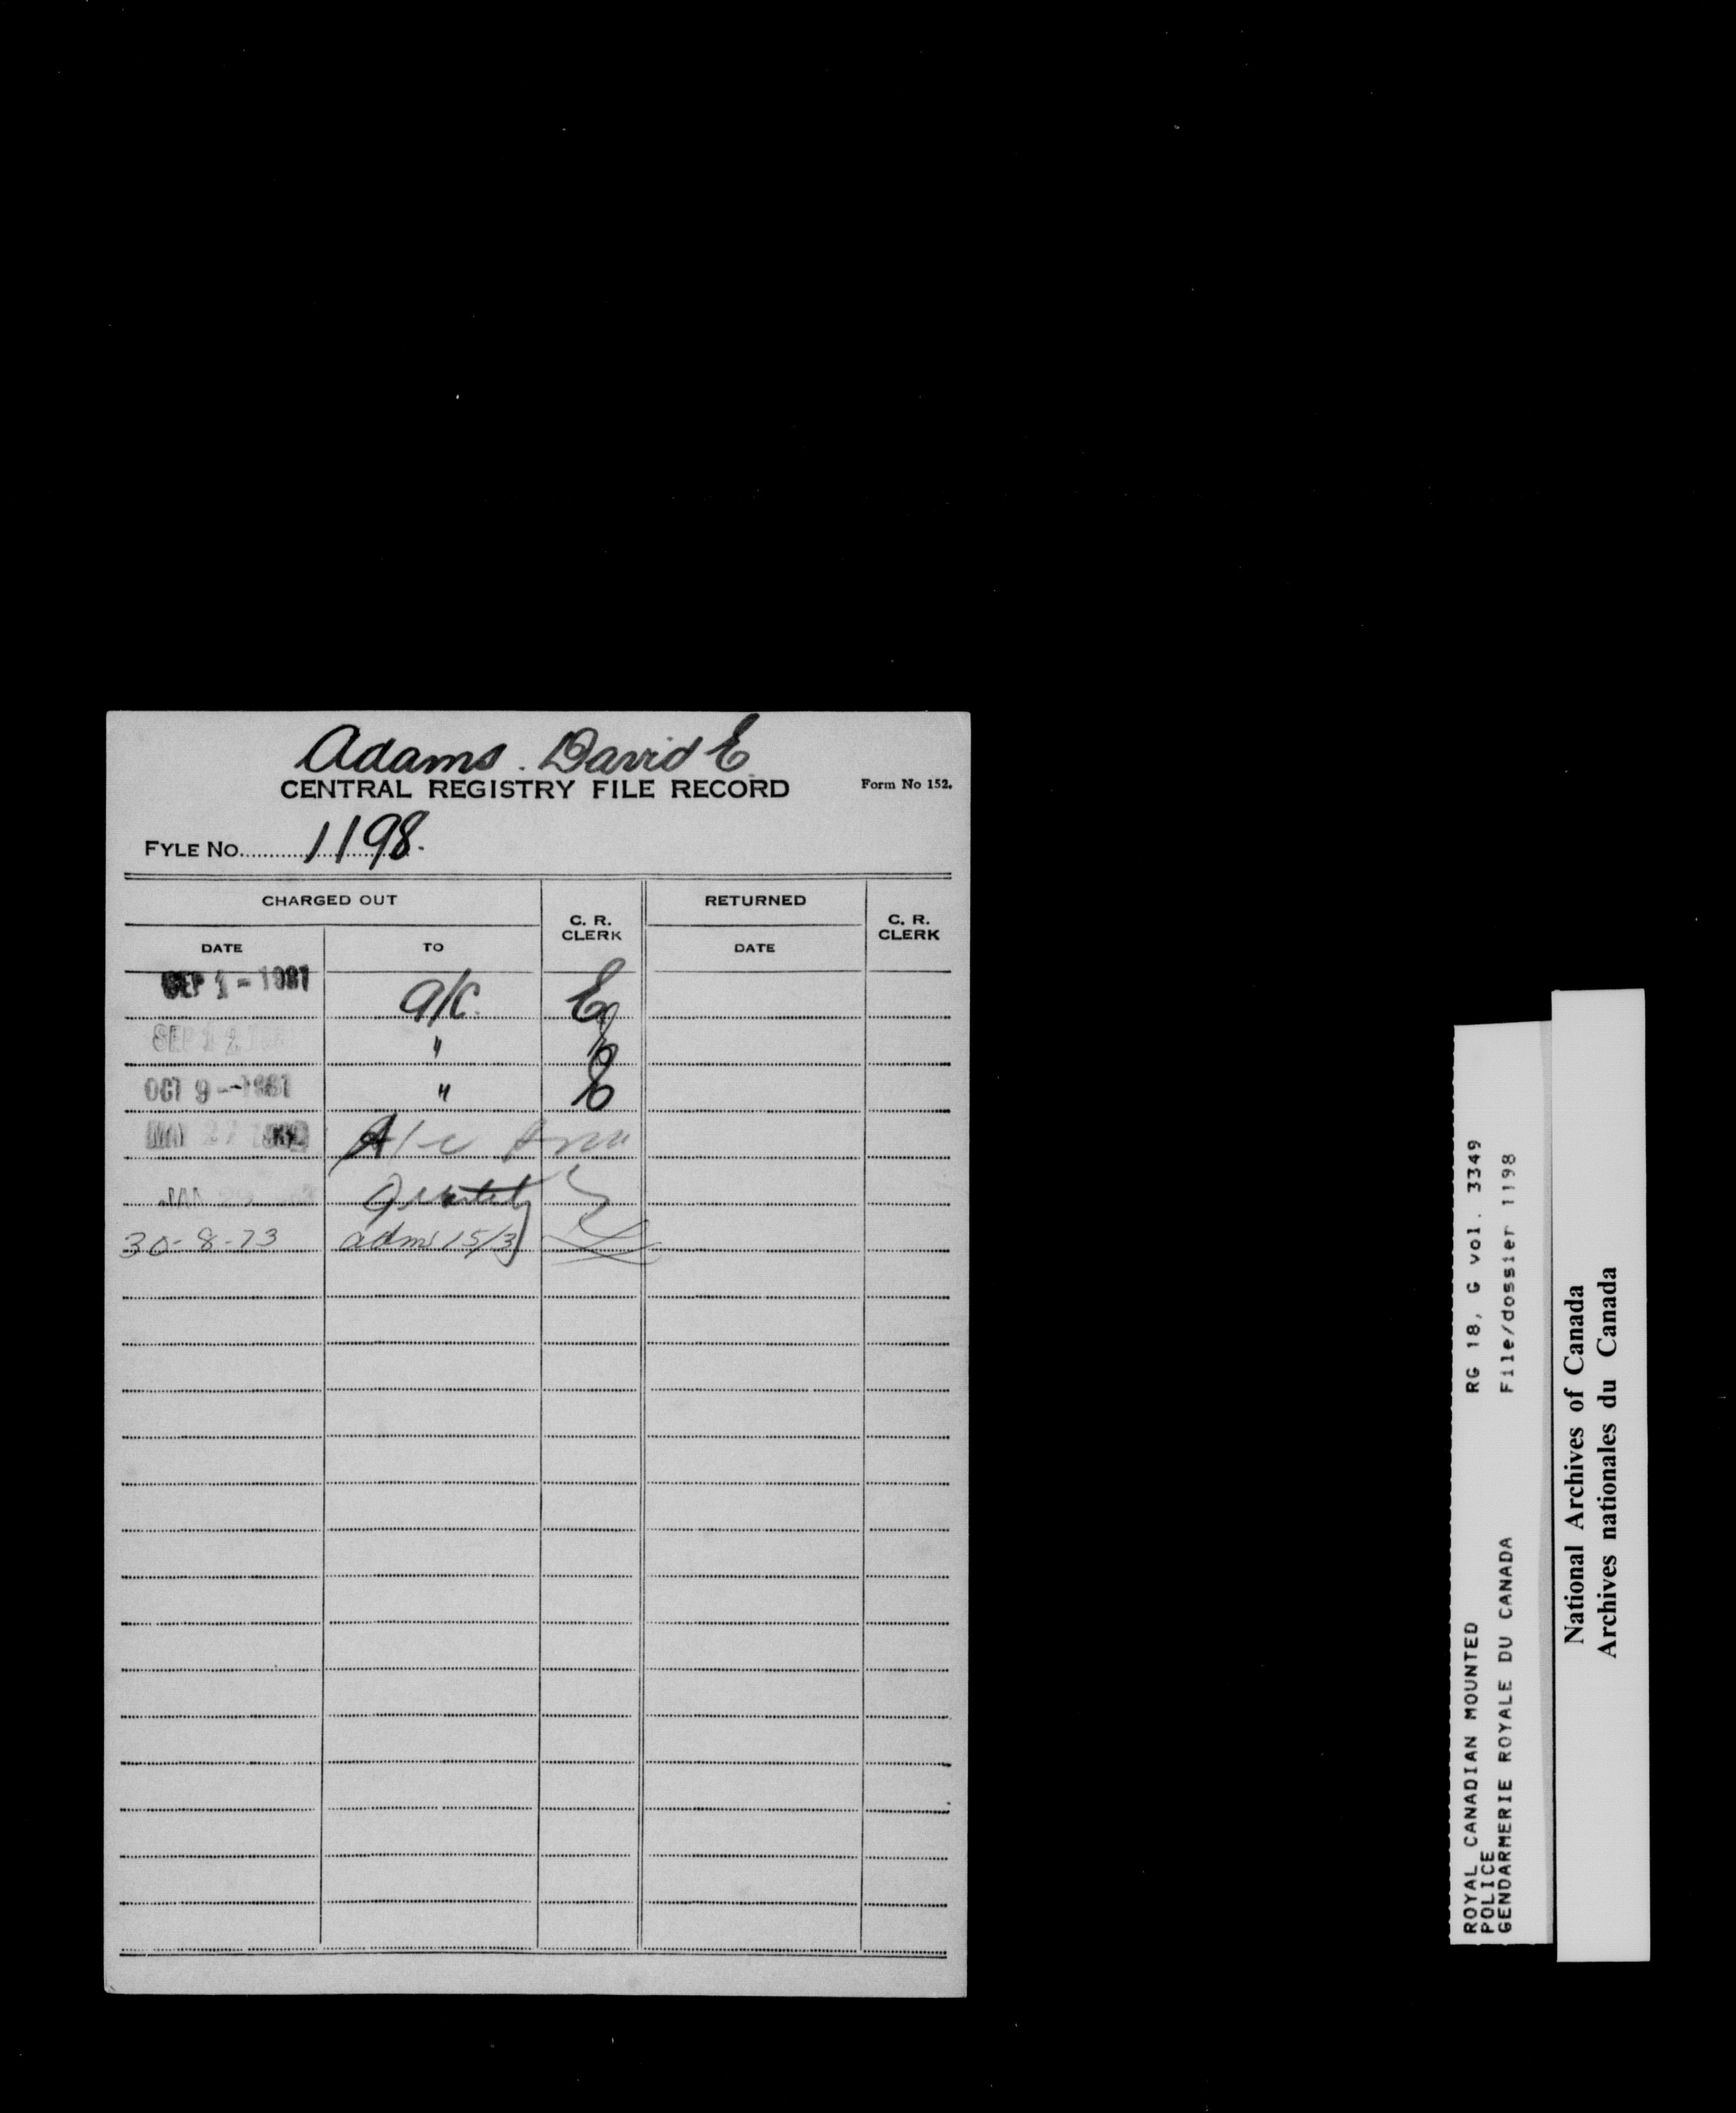 Adams. David E.
CENTRAL REGISTRY FILE RECORD
Form No 152.
FYLE No. 1198.
CHARGED OUT
C. R. CLERK
RETURNED
C. R. CLERK
DATE
TO
DATE
SEP 1 - 1961 a/c. E
SEP 12 "
OCT 9 - 1961 " E
27 A/c
JAN
30-8-73 adm 15/3
ROYAL CANADIAN MOUNTED
POLICE
GENDARMERIE ROYALE DU CANADA
RG 18, G vol. 3349
File/dossier 1198
National Archives of Canada
Archives nationales du Canada